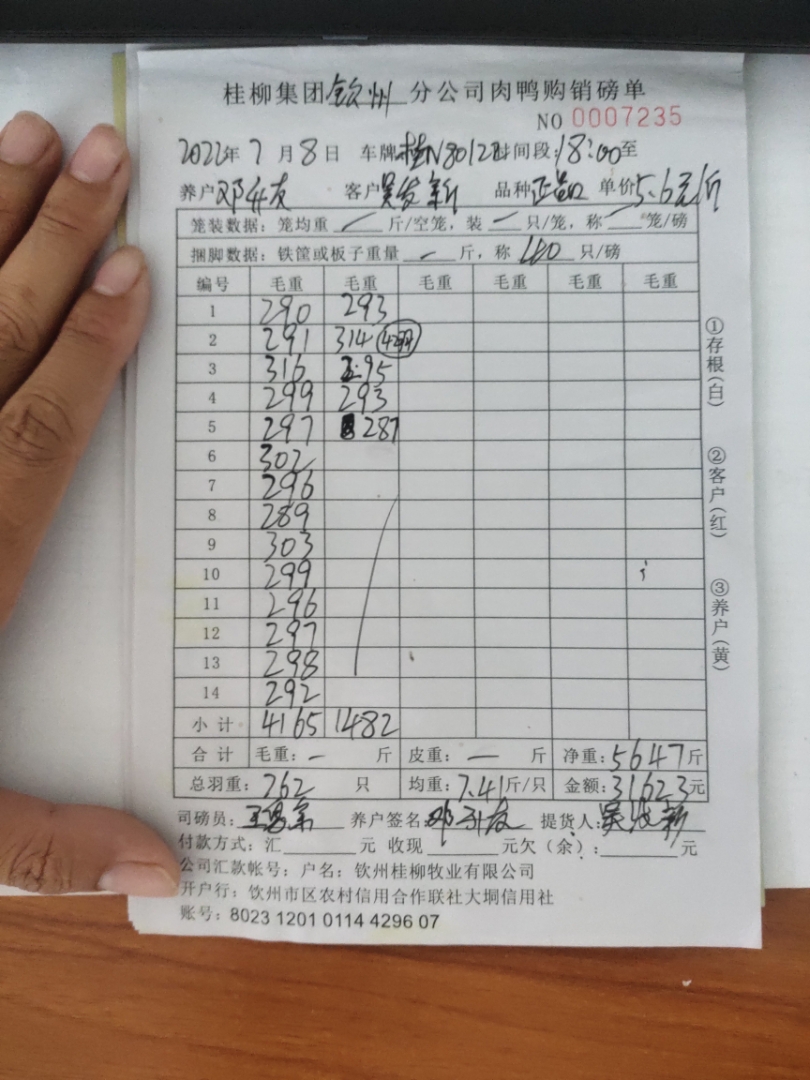 桂柳集团钦州分公司肉鸭购销磅单
NO 0007235
2022年7月8日 车牌桂N80122时间段:18:00至
养户邓升友 客户吴发新 品种正品 单价5.6元/斤
笼装数据:笼均重 / 斤/空笼,装 一 只/笼,称 一 笼/磅
捆脚数据:铁筐或板子重量 一 斤,称 40 只/磅
编号 毛重 毛重 毛重 毛重 毛重 毛重
1 290 293
2 291 314 (42羽)
3 316 295
4 299 293
5 297 287
6 302
7 296
8 289
9 303
10 299
11 296
12 297
13 298
14 292
小计 4165 1482
合计 毛重:一 斤 皮重:一 斤 净重:5647斤
总羽重:762 只 均重:7.41斤/只 金额:31623元
司磅员: 养户签名:邓升友 提货人:吴发新
付款方式:汇 元 收现 元欠(余): 元
公司汇款帐号:户名:钦州桂柳牧业有限公司
开户行:钦州市区农村信用合作联社大垌信用社
账号:8023 1201 0114 4296 07
①存根(白)
②客户(红)
③养户(黄)